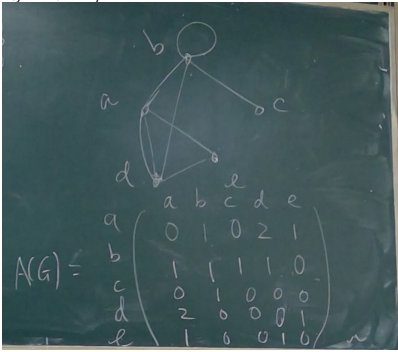 b
a
c
e
d
a b c d e
a 0 1 0 2 1
b 1 1 1 1 0
A(G) =
c 0 1 0 0 0
d 2 0 0 0 1
e 1 0 0 1 0